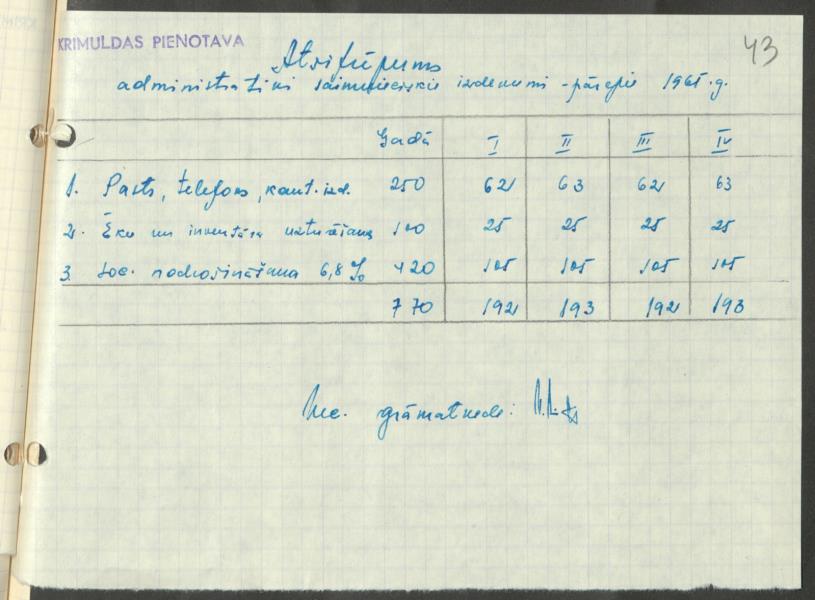 43
KRIMULDAS PIENOTAVA
Atšifrējums
administratīvi saimnieciskie izdevumi - pārējie 1965.g.
Gadā I II III IV
1. Pasts, telefons, kant. izd. 250 62 63 62 63
2. Ēku un inventāra uzturēšana 100 25 25 25 25
3. Soc. nodrošināšana 6,8% 420 105 105 105 105
770 192 193 192 193
grāmatvede: